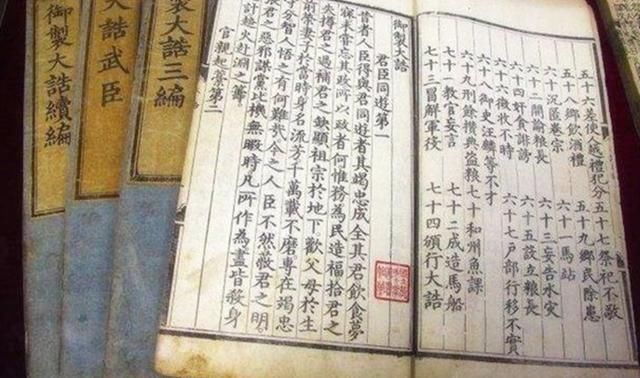 五十六差使人越禮犯分 五十七祭祀不敬
五十八鄉飲酒禮 五十九鄉民除患
六十沉匿卷宗 六十一馬站
六十二開諭糧長 六十三妄告水灾
六十四奸貪誹謗 六十五設立粮長
六十六徵收不時 六十七戶部行移不實
六十八御史汪麟等不才
六十九刑餘攢典盜粮 七十和州魚課
七十一教官妄言 七十二成造馬船
七十三冒解軍役 七十四頒行大誥
御製大誥
君臣同遊第一
昔者人臣得與君同遊者其竭忠成全其君飲食夢
寐未嘗忘其政所以政者何惟務為民造福拾君之
失撙君之過補君之缺顯祖宗於地下歡父母於生
前榮妻子於當時身名流芳千萬載不磨專在竭忠
守分智人悟之有何難哉今之人臣不然蔽君之明
張君之惡邪謀黨比幾無暇時凡所作為盡皆殺身
計趨火赴淵之籌
官親起藁第二
製大誥三編
大誥武臣
御製大誥續編